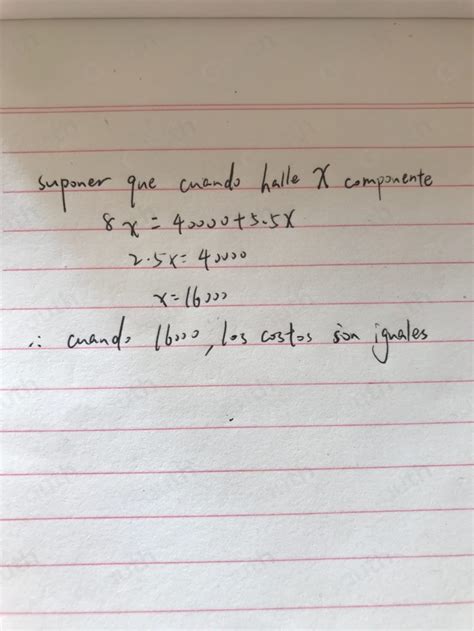 suponer que cuando halle X componente
8x = 40000 + 5.5x
2.5x = 40000
x = 16000
∴ cuando 16000, los costos son iguales